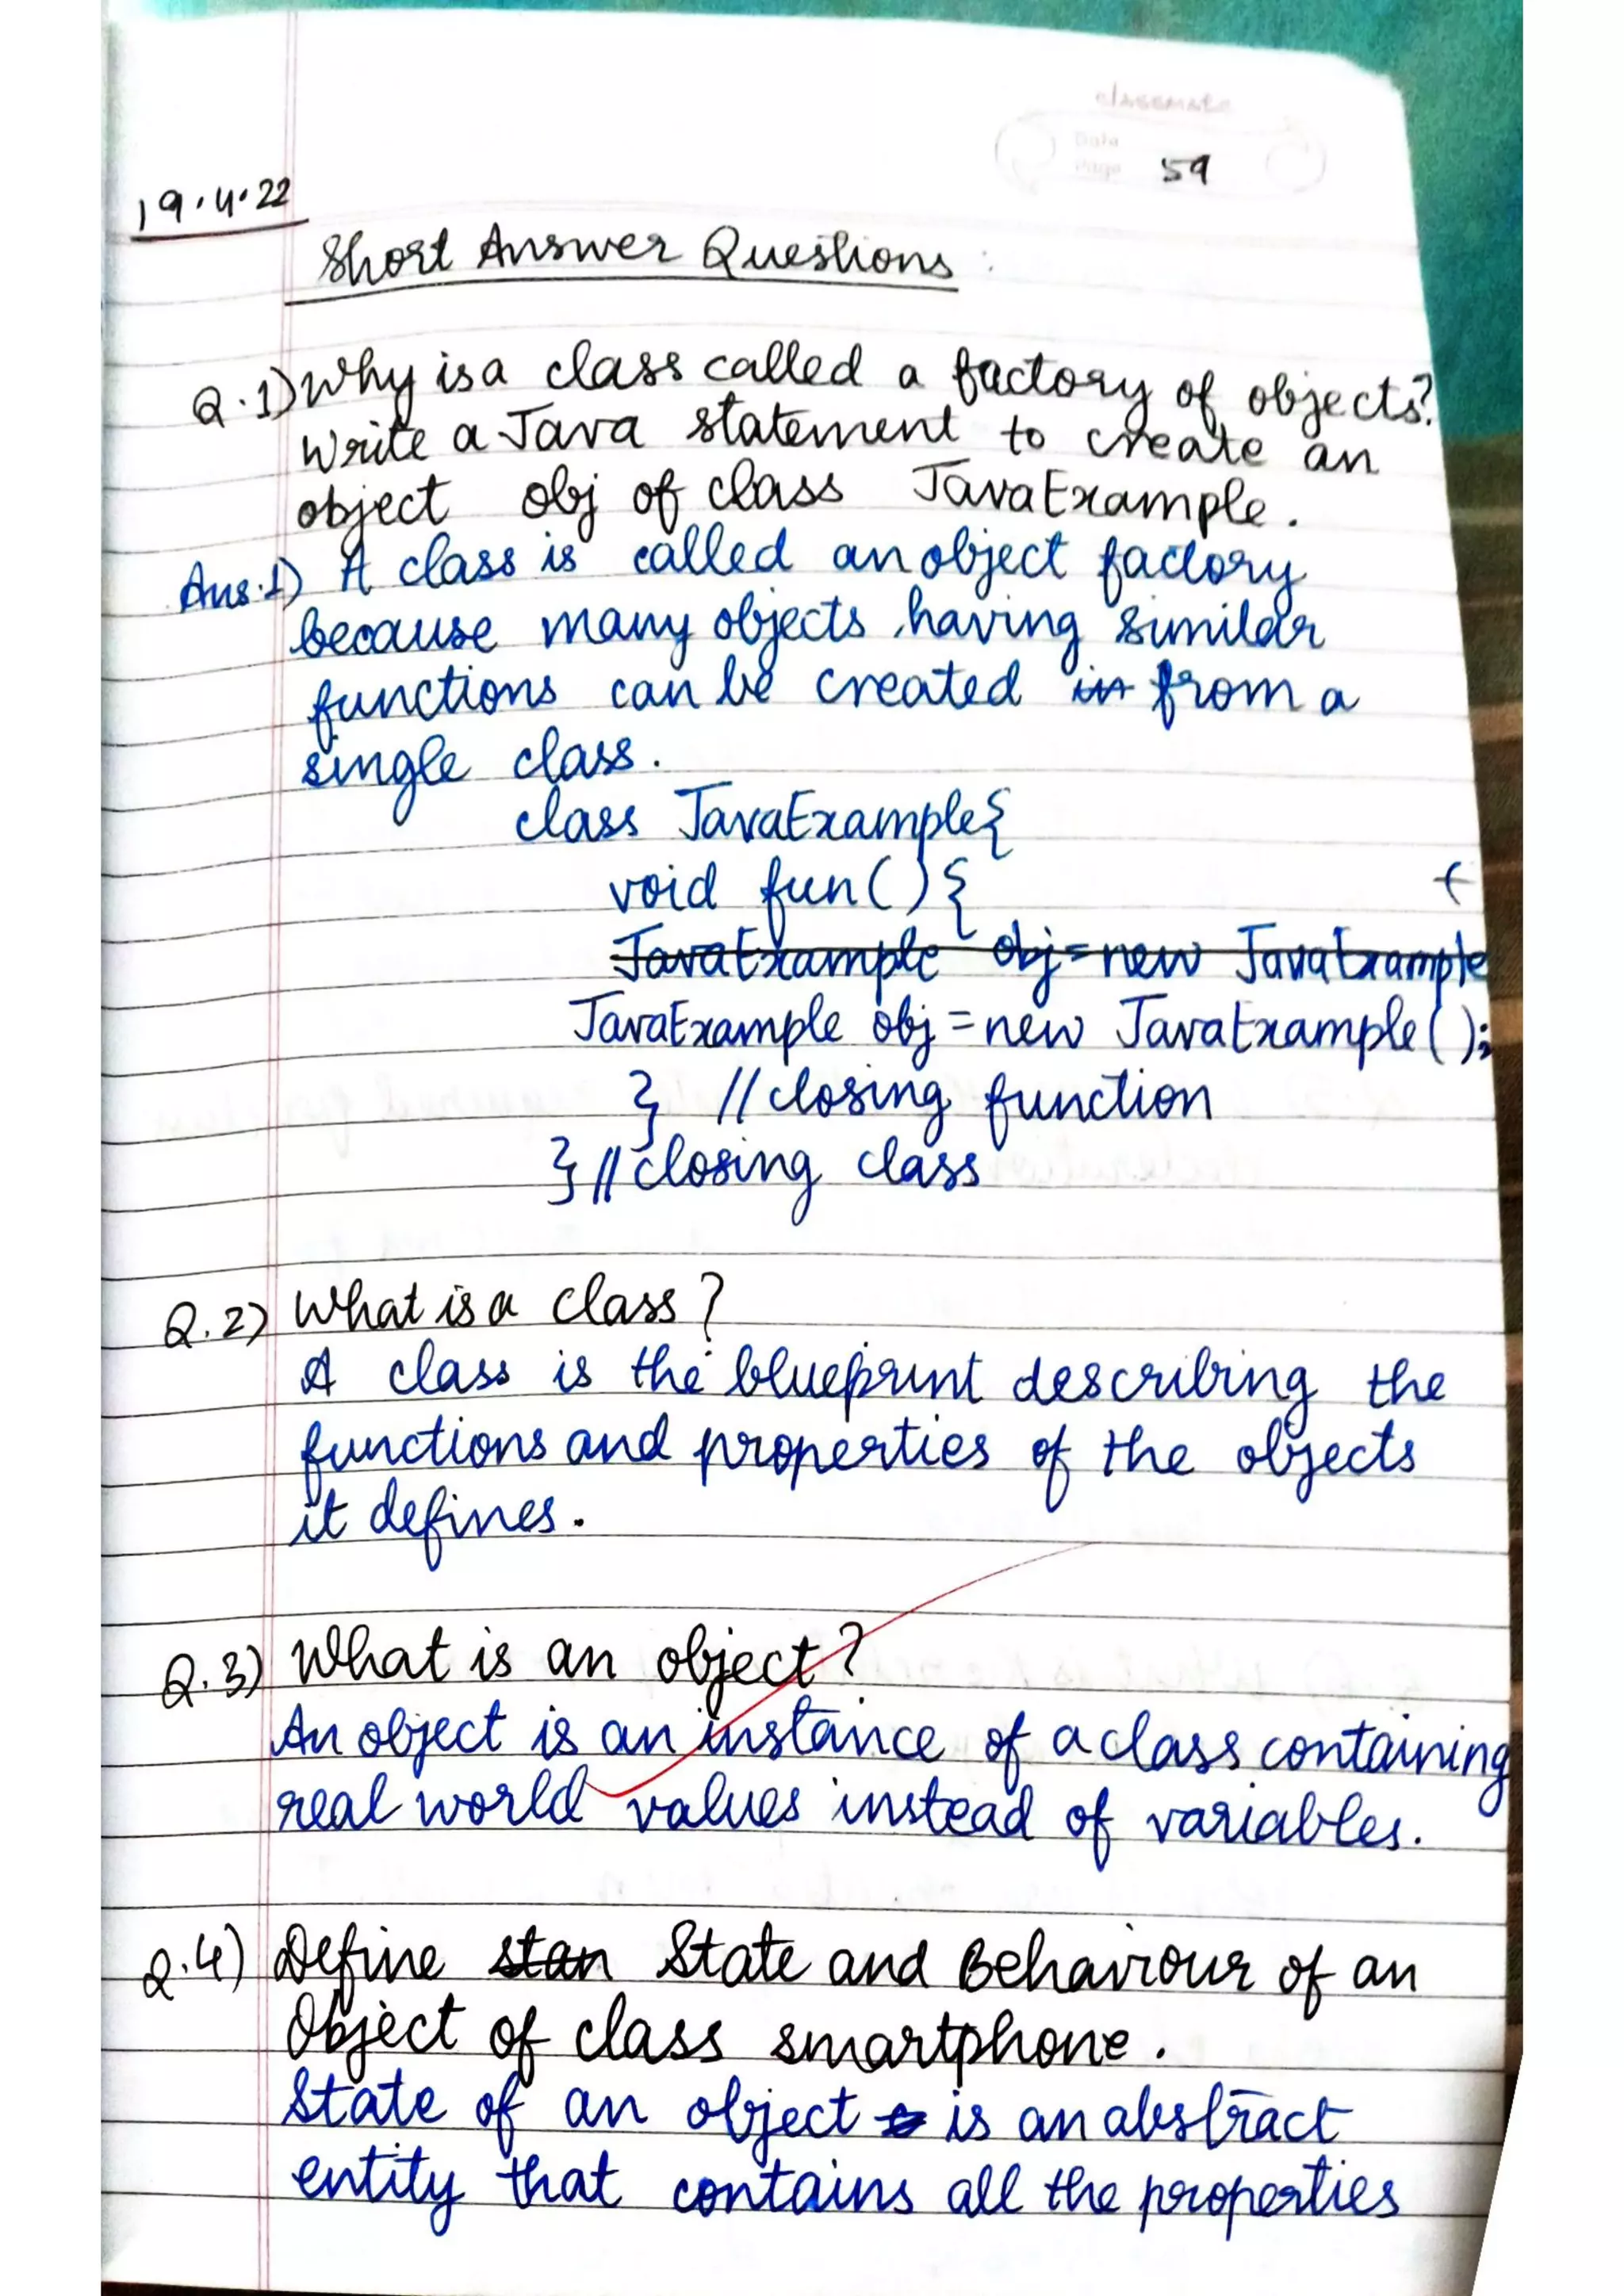 classmate
Date
Page 59
19.4.22
Short Answer Questions:
Q.1) Why is a class called a factory of objects?
Write a Java statement to create an
object obj of class JavaExample.
Ans.1) A class is called an object factory
because many objects having similar
functions can be created in from a
single class.
class JavaExample{
void fun(){
JavaExample obj=new JavaExample
JavaExample obj=new JavaExample();
} //closing function
} //closing class
Q.2) What is a class?
A class is the blueprint describing the
functions and properties of the objects
it defines.
Q.3) What is an object?
An object is an instance of a class containing
real world values instead of variables.
Q.4) Define stan State and Behaviour of an
Object of class smartphone.
State of an object is an abstract
entity that contains all the properties